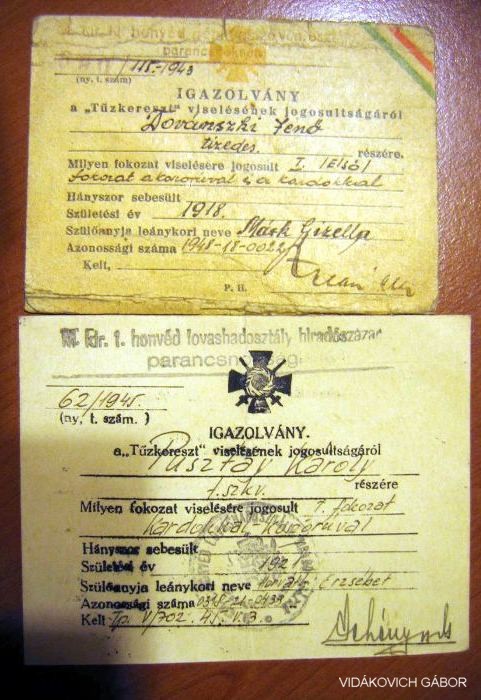 kir. honvéd
parancsnokság
III.-1943
(ny. t. szám)
IGAZOLVÁNY
a „Tűzkereszt" viselésének jogosultságáról
Dovánszki Jenő
tizedes részére.
Milyen fokozat viselésére jogosult I. /első/
fokozat a koszorúval és a kardokkal
Hányszor sebesült
Születési év 1918.
Szülőanyja leánykori neve Márk Gizella
Azonossági száma 1948-18-0022
Kelt,
P. H.
M. kir. 1. honvéd lovashadosztály hiradószázad
parancsnokság
62/1945.
(ny, t. szám. )
IGAZOLVÁNY.
a „Tűzkereszt" viselésének jogosultságáról
Pusztay Károly
részére
Milyen fokozat viselésére jogosult I. fokozat
Kardokkal-Koszorúval
Hányszor sebesült
Születési év 1921
Szülőanyja leánykori neve Erzsébet
Azonossági száma
Kelt Tp. V/702. 45. V. 3.
VIDÁKOVICH GÁBOR